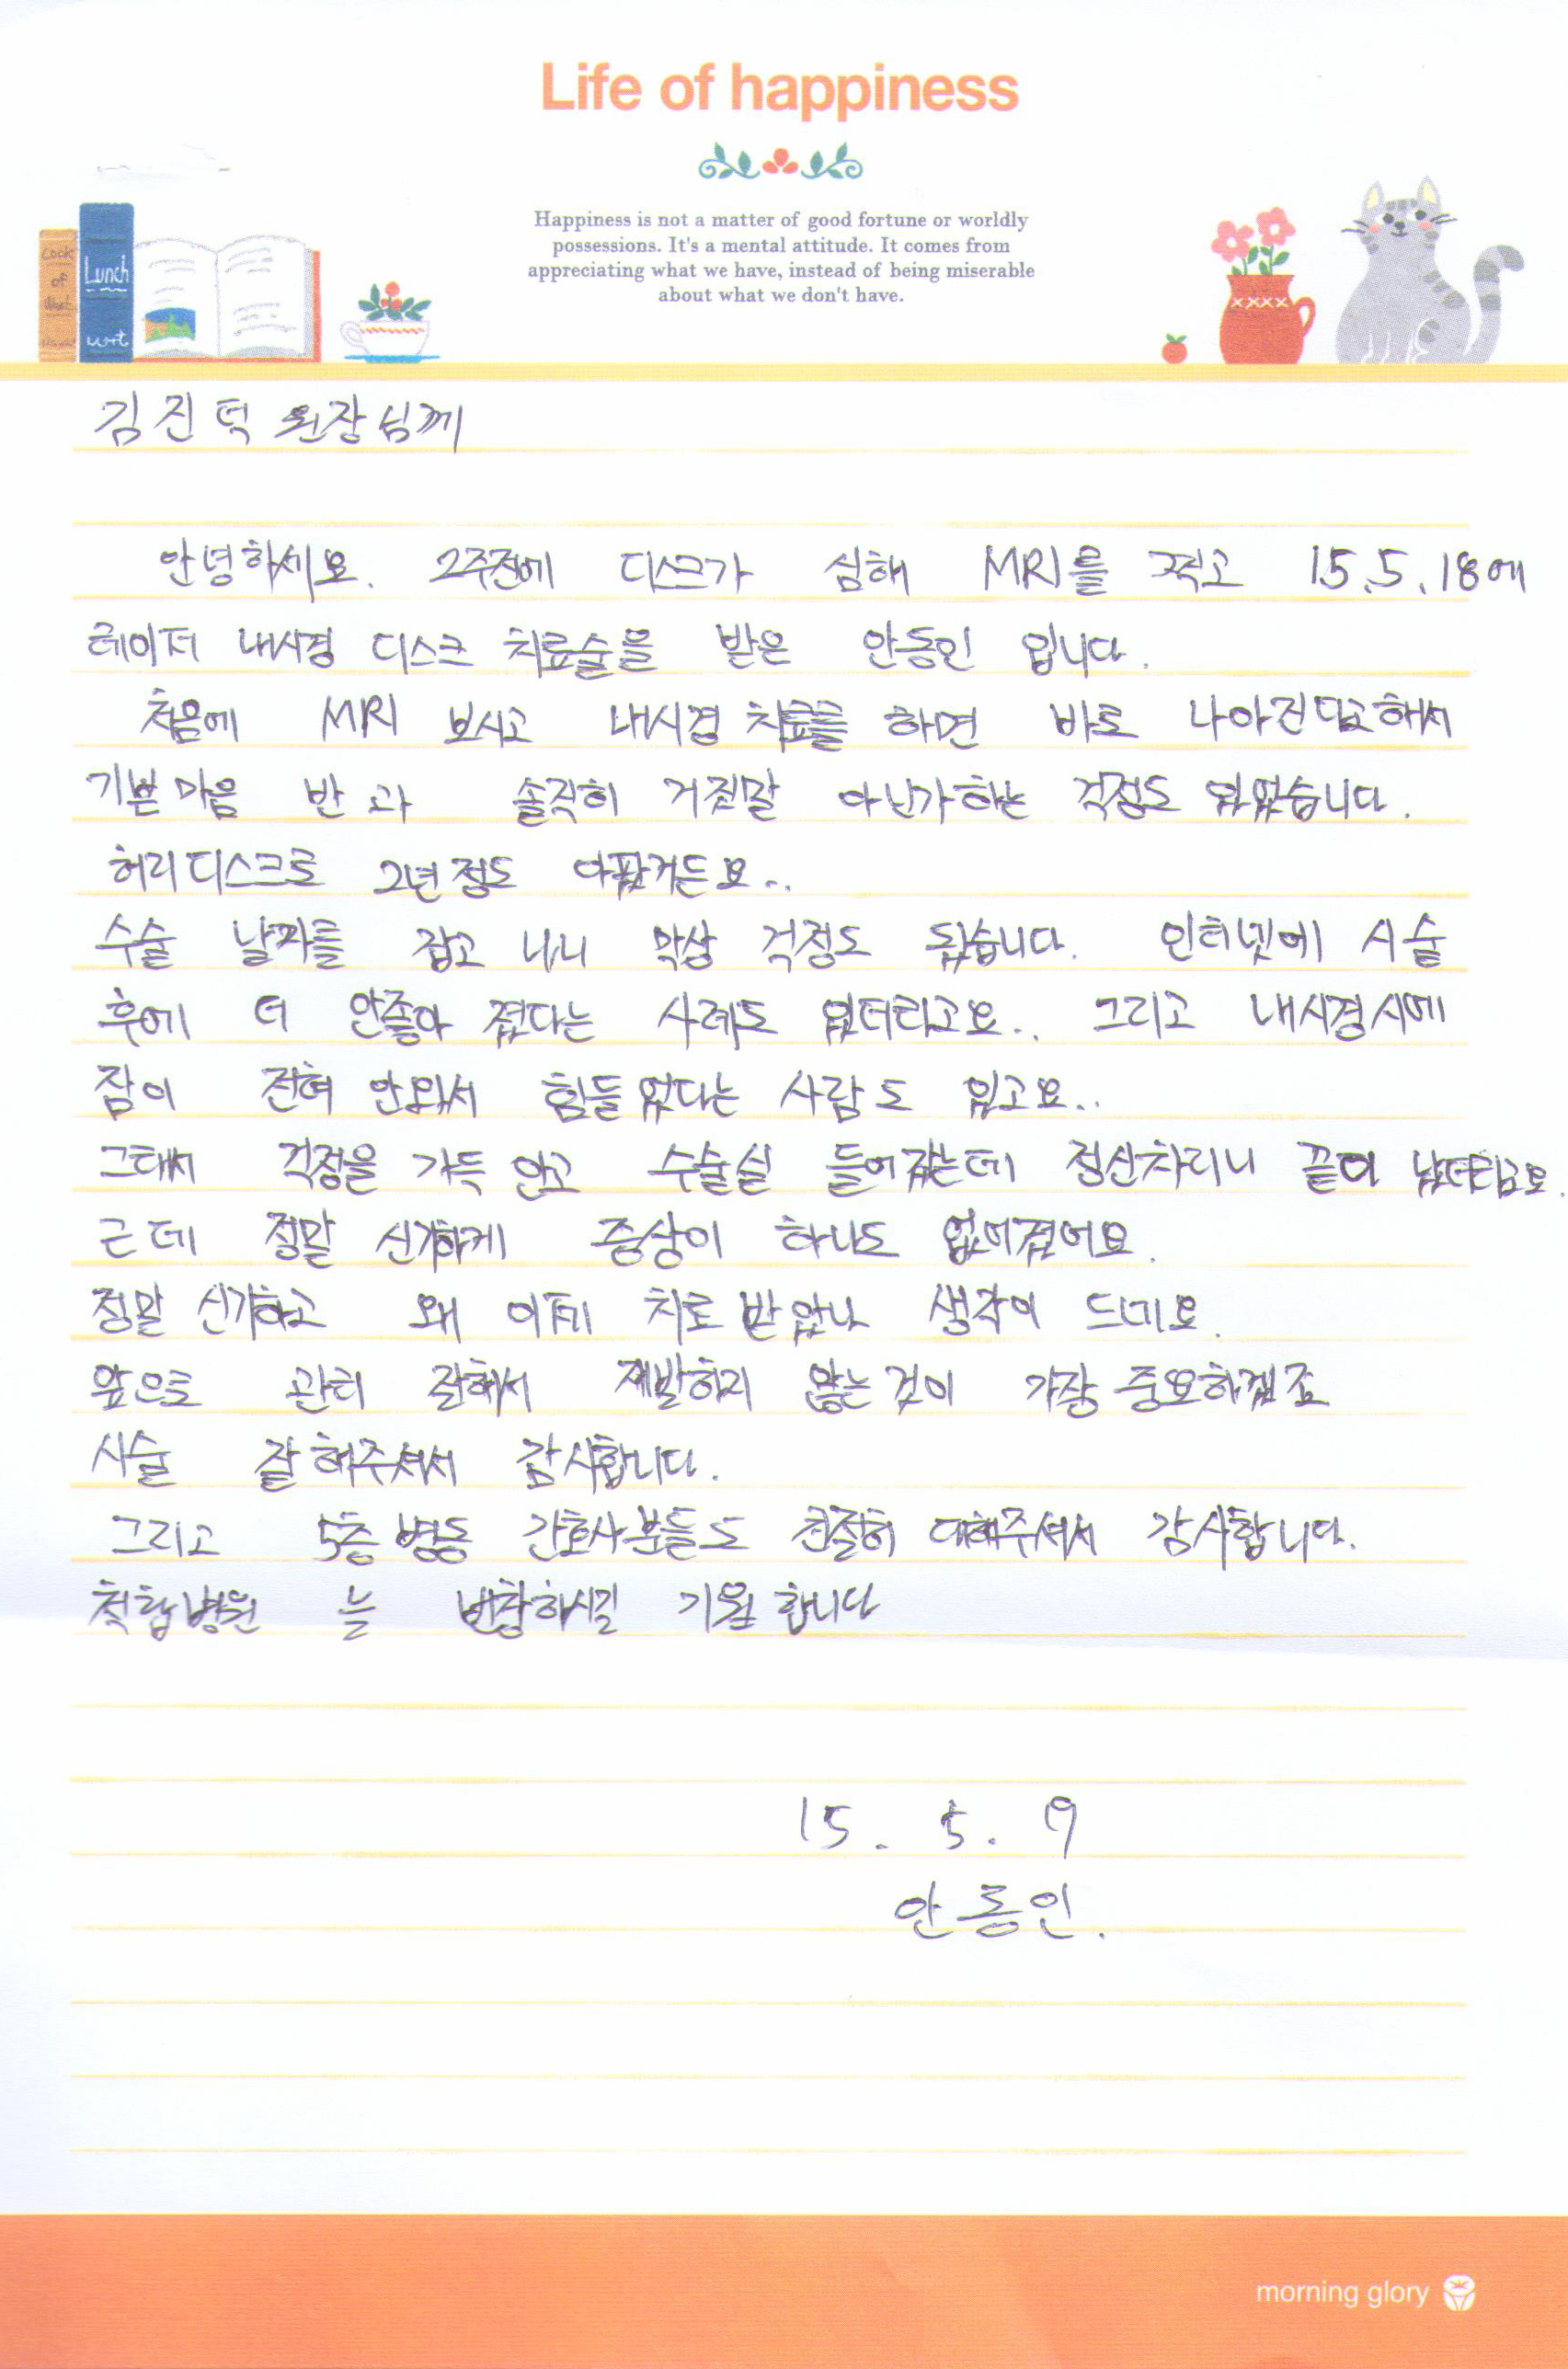 Life of happiness
Happiness is not a matter of good fortune or worldly
possessions. It's a mental attitude. It comes from
appreciating what we have, instead of being miserable
about what we don't have.
Lunch
of
김진덕 원장님께
안녕하세요. 2주전에 디스크가 심해 MRI를 찍고 15.5.18에
레이저 내시경 디스크 치료술을 받은 안동인 입니다.
처음에 MRI 보시고 내시경 치료를 하면 바로 나아진다고해서
기쁜마음 반과 솔직히 거짓말 아닌가하는 걱정도 있었습니다.
허리디스크로 2년정도 아팠거든요..
수술 날짜를 잡고 나니 막상 걱정도 됬습니다. 인터넷에 시술
후에 더 안좋아 졌다는 사례도 있더라고요.. 그리고 내시경시에
잠이 전혀 안와서 힘들었다는 사람도 있고요..
그래서 걱정을 가득 안고 수술실 들어갔는데 정신차리니 끝이 났더라고요.
근데 정말 신기하게 증상이 하나도 없어졌어요.
정말 신기하고 왜 이제 치료받았나 생각이 드네요.
앞으로 관리 잘해서 재발하지 않는것이 가장 중요하겠죠
시술 잘해주셔서 감사합니다.
그리고 5층병동 간호사분들도 친절히 대해주셔서 감사합니다.
척탑병원 늘 번창하시길 기원 합니다
15. 5. 9
안동인.
morning glory